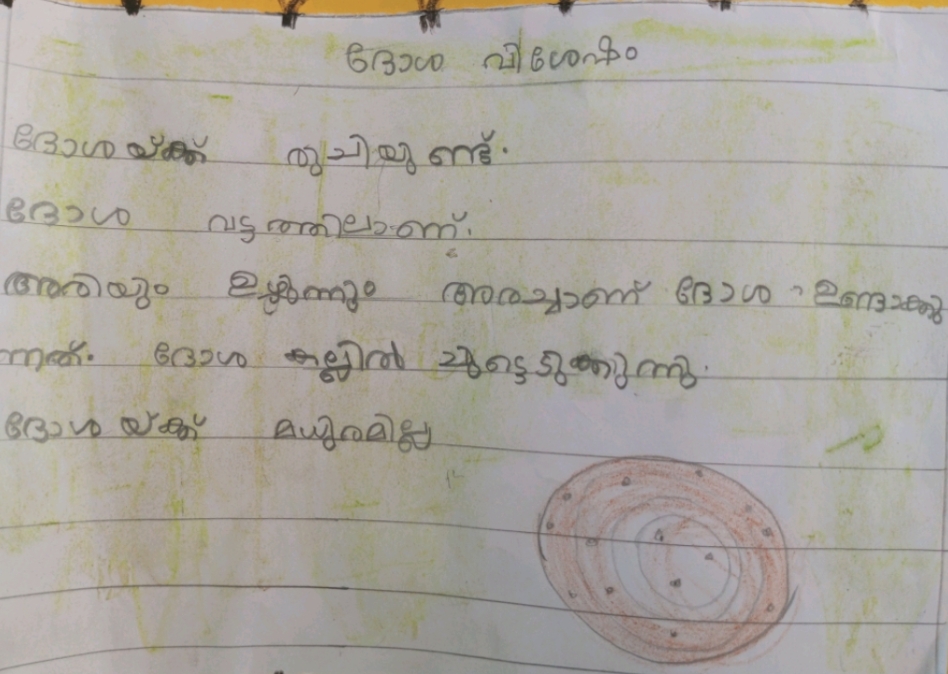 ദോശ വിശേഷം
ദോശയ്ക്ക് രുചിയുണ്ട്.
ദോശ വട്ടത്തിലാണ്.
അരിയും ഉഴുന്നും അരച്ചാണ് ദോശ ഉണ്ടാക്കു
ന്നത്. ദോശ കല്ലിൽ ചുട്ടെടുക്കുന്നു.
ദോശയ്ക്ക് മധുരമില്ല